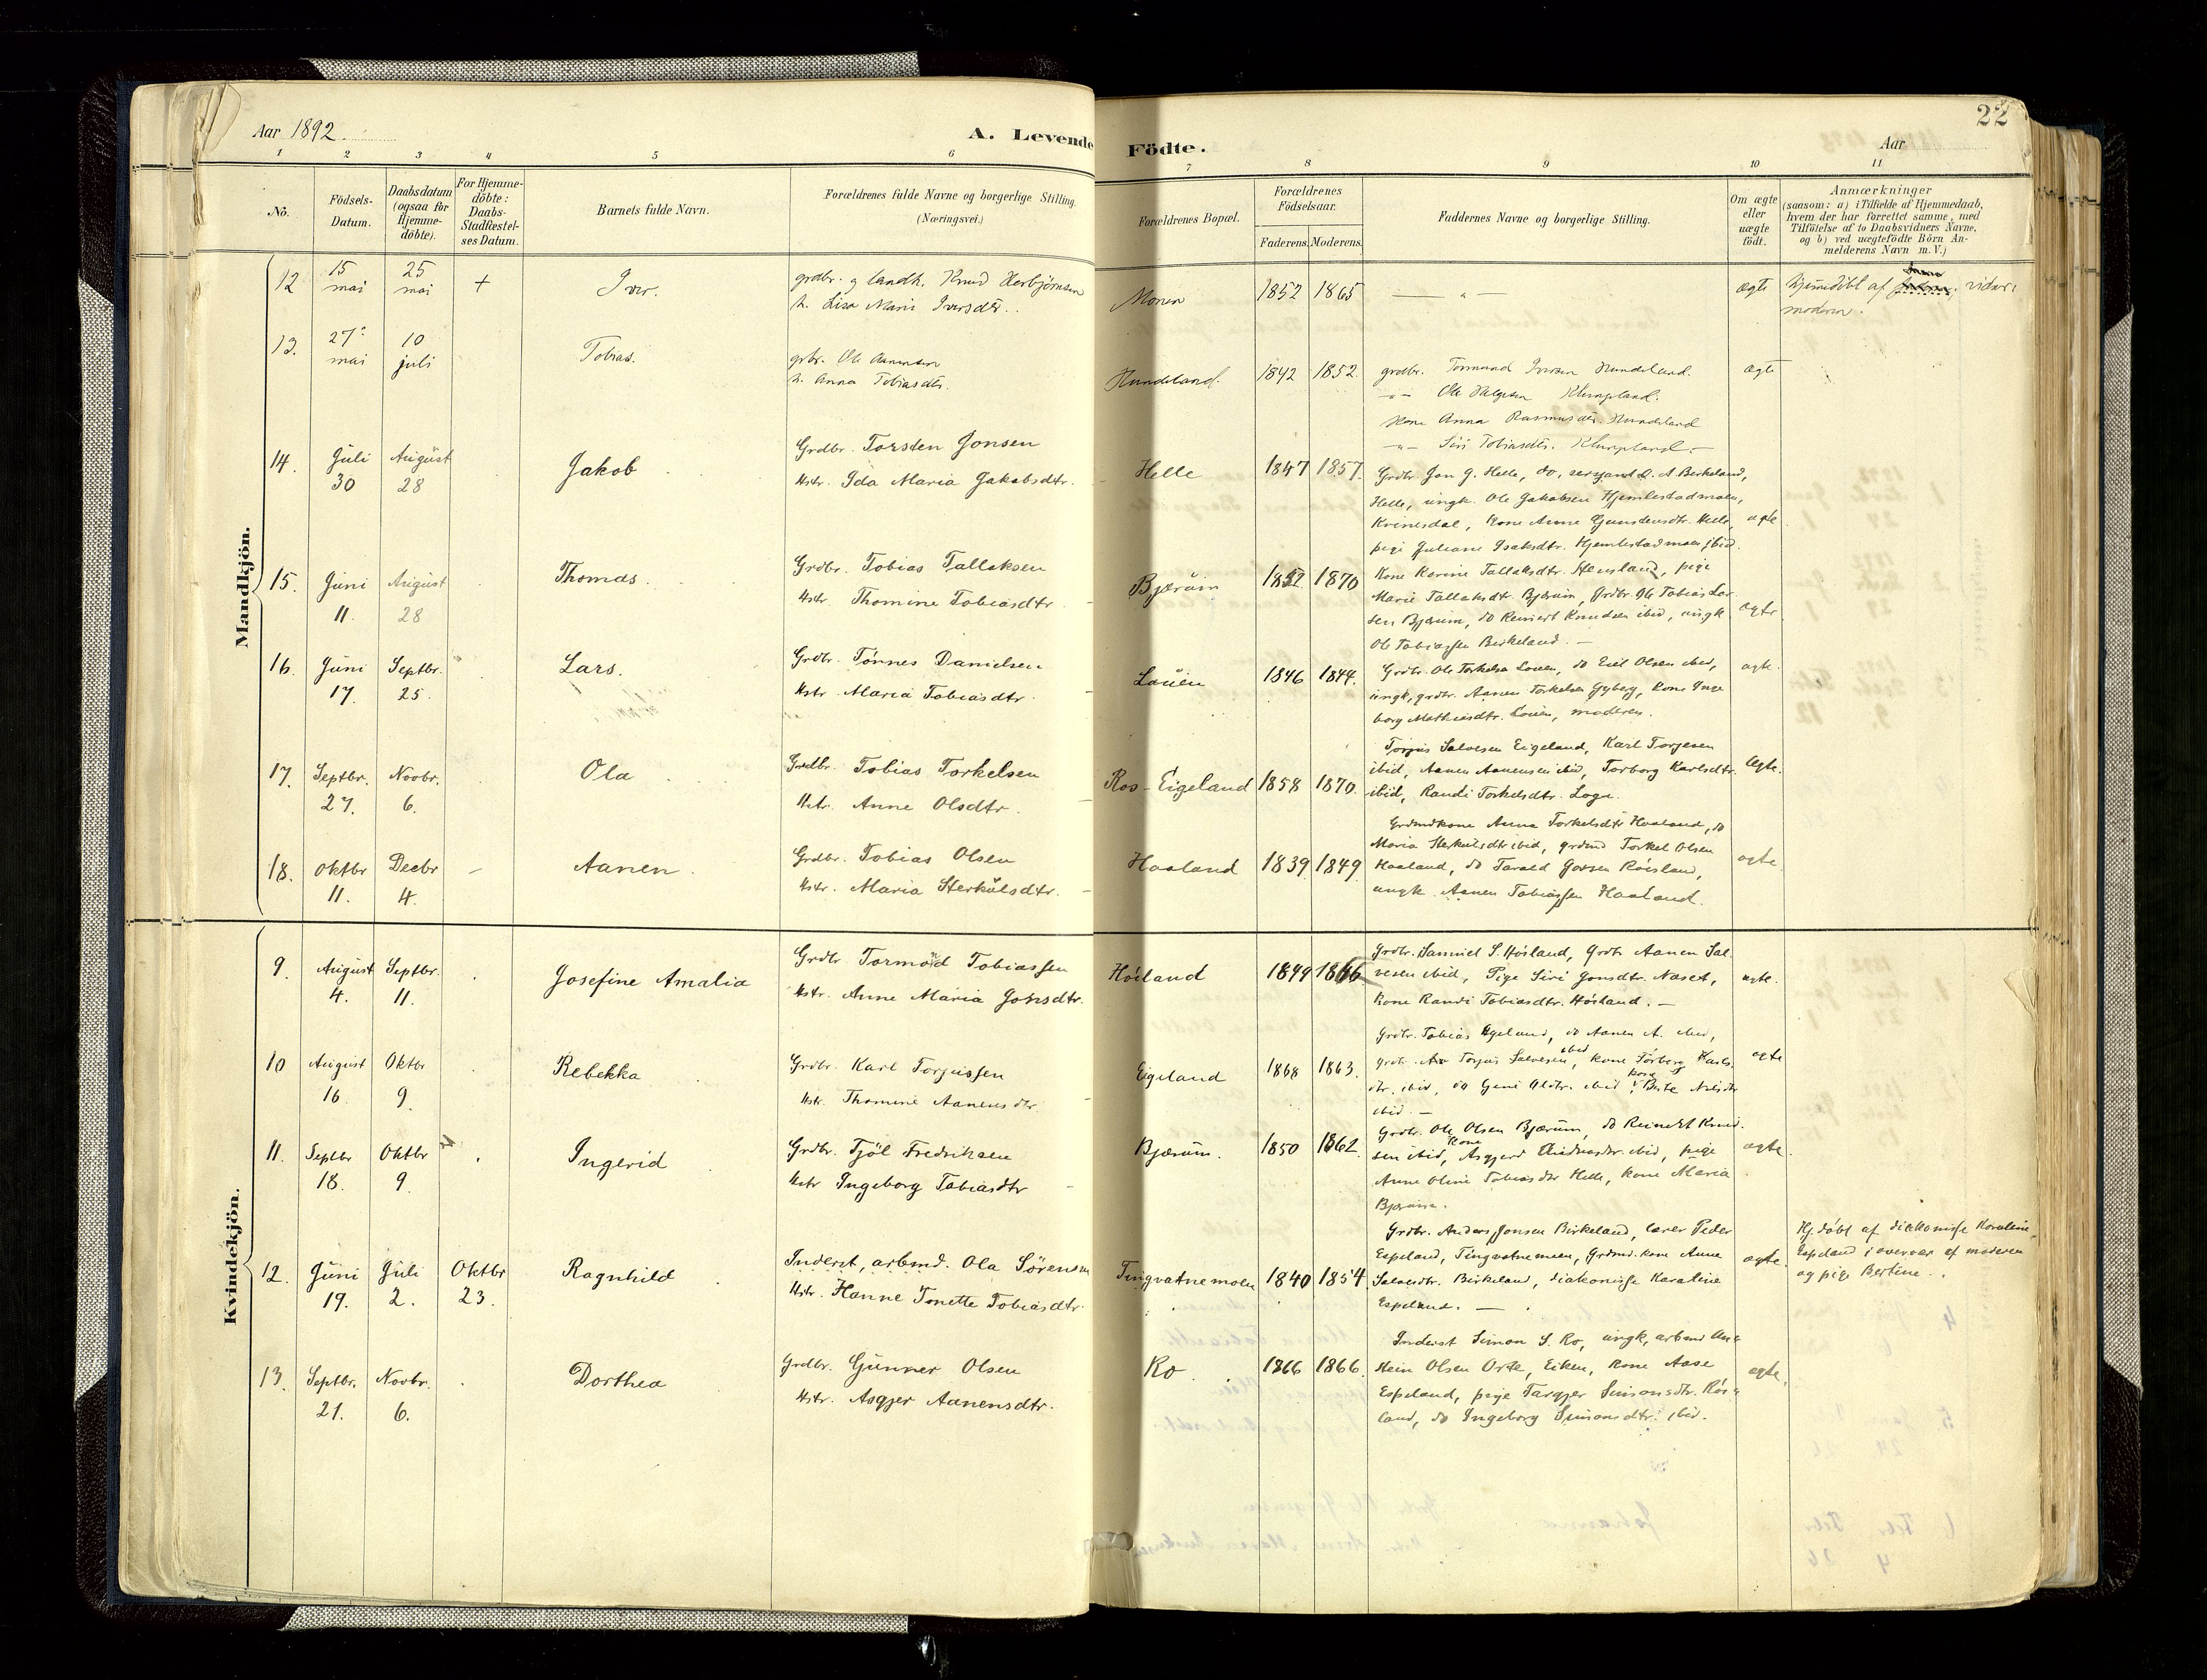 22
Aar 1892
A. Levende Födte.
Aar
1 2 3 4 5 6 7 8 9 10 11
No.
Födsels-
Datum.
Daabsdatum
(ogsaa for
Hjemme-
döbte).
For Hjemme-
döbte:
Daabs-
Stadfæstel-
ses Datum.
Barnets fulde Navn.
Forældrenes fulde Navne og borgerlige Stilling.
(Næringsvei.)
Forældrenes Bopæl.
Forældrenes
Födselsaar.
Faderens. Moderens.
Faddernes Navne og borgerlige Stilling.
Om ægte
eller
uægte
födt.
Anmærkninger
(saasom: a) i Tilfælde af Hjemmedaab,
hvem der har forrettet samme, med
Tilföielse af to Daabsvidners Navne,
og b) ved uægtefödte Börn An-
melderens Navn m. V.)
Mandkjön.
12 15 mai 25 mai + Iver.
grdbr. g landh. Knud Herbjörnsen
h. Lisa Marie Iversdtr.
Monen 1852 1865 — " — ægte
hjemmedöbt af
moderen.
13. 27 mai 10 juli Tobias.
grbr. Ole Aanensen
h. Anna Tobiasdtr.
Hundeland. 1842 1852. ægte
grdbr. Tormund Iversen Hundeland.
-"- Ole Helgesen Klungland.
Kone Anna Rasmusdtr. Hundeland
-"- Siri Tobiasdtr. Klungland.-
14. Juli 30 August 28 Jakob
Grdbr. Torsten Jonsen
Hstr. Ida Maria Jakobsdtr.
Helle 1847 1857. ægte.
Grdbr. Jon J. Helle, do, sersjant A. Birkeland,
Helle, ungk. Ole Jakobsen Hjemlestadmoen,
Kvinesdal, Kone Anne Gunstensdtr. Helle,
pige Juliane Isaksdtr. Hjemlestadmoen ibid.
15. Juni 11. August 28 Thomas.
Grdbr. Tobias Tallaksen
Hstr Thomine Tobiasdtr
Bjærum 1852 1870 ægte.
Kone Karine Tallaksdtr. Stensland, pige
Marie Tallaksdtr. Bjærum, Grdbr. Ole Tobias Lar-
sen Bjærum, do Reinert Knudsen ibid, ungk
Ole Tobiassen Birkeland. -
16. Juni 17. Septbr. 25. Lars.
Grdbr. Tönnes Danielsen
Hstr. Maria Tobiasdtr.
Louen 1846 1844. ægte.
Grdbr. Ole Torkelsen Louen, do Emil Olsen ibid,
ungk, grdbr. Aanen Torkelsen Gyberg, Kone Inge
borg Mathiasdtr. Louen, moderen.
17. Septbr. 27. Novbr. 6. Ola
Grdbr. Tobias Torkelsen
Hstr. Anne Olsdtr.
Ros-Eigeland 1858 1870. ægte.
Torjus Salvesen Eigeland, Karl Torjesen
ibid, Aanen Aanensen ibid, Torborg Karlsdtr.
ibid, Randi Torkelsdtr. Loga.
18. Oktbr 11. Decbr 4. — Aanen
Grdbr. Tobias Olsen
Hstr. Maria Sterkulsdtr.
Haaland 1839 1849 ægte
Grdmdkone Anna Torkelsdtr Haaland, do
Maria Sterkulsdtr ibid, grdmd Torkel Olsen
Haaland, do Tarald Röisland,
ungk. Aanen Tobiassen Haaland.
Kvindekjön.
9. August 4. Septbr. 11. Josefine Amalia
Grdbr Tormond Tobiassen
Hstr. Anne Maria Jonsdtr.
Höiland 1849 1866 ægte.
Grdbr. Samuel S. Höiland, Grdbr Aanen Sal-
vesen ibid, Pige Siri Jonsdtr. Naset,
Kone Randi Tobiasdtr. Höiland. -
10 August 16 Oktbr 9. Rebekka
Grdbr. Karl Torjussen
Hstr. Thomine Aanensdtr.
Eigeland 1868 1863. ægte
Grdbr. Tobias Egeland, do Aanen A. ibid,
grdbr. Torjus Salvesen ibid, Kone Torborg Karls-
dtr. ibid, do Guni Oldtr. ibid Kone Berte Nilsdtr
ibid. -
11. Septbr 18. Oktbr 9. Ingerid
Grdbr. Tjöl Fredriksen
Hstr Ingeborg Tobiasdtr
Bjærum. 1850 1862. ægte.
Grdbr. Ole Olsen Bjærum, do Reinert Knud-
sen ibid, Kone Asgjerd ibid, pige
Anne Oline Tobiasdtr Helle, Kone Maria
Bjærum.
12. Juni 19. Juli 2. Oktbr 23. Ragnhild
Inderst, arbmd. Ola Sörensen
Hstr. Hanne Tonette Tobiasdtr.
Tingvatnemoen 1840 1854. ægte.
Grdbr. Anders Jonsen Birkeland, lærer Peder
Espeland, Tingvatnemoen, Grdmd. kone Anne
Salvesdtr. Birkeland, diakonisse Karoline
Espeland. —
Hj.döbt af diakonisse Karoline
Espeland i overvær af moderen
og pige Bertine.
13. Septbr. 21. Novbr. 6. Dorthea
Grdbr. Gunner Olsen
Hstr. Asgjer Aanensdtr.
Ro 1866 1866. ægte.
Inderst Simon S. Ro, ungk, arbmd An-
stein Olsen Orte, Eiken, Kone Aase
Espeland, pige Targjer Simonsdtr. Rös-
land, do Ingeborg Simonsdtr. ibid.